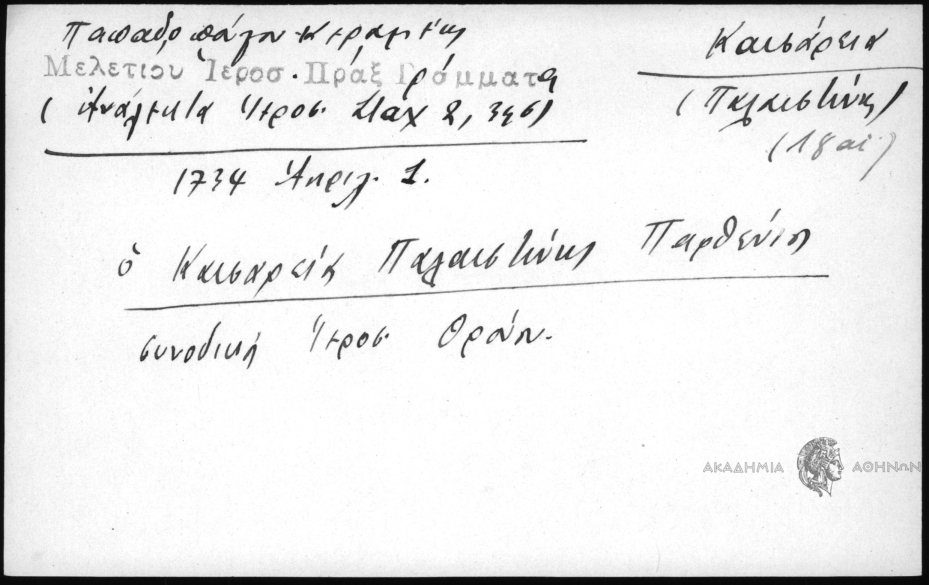 Παπαδοπούλου Κεραμέως
Καισάρεια
Μελετίου Ἱεροσ. Πραξ Γράμματα
(Παλαιστίνης)
(Ἀνάλεκτα Ἱεροσ. Σταχ 2,
(18 αἰ)
1734 Ἀπριλ. 1.
ὁ Καισαρείας Παλαιστίνης Παρθένιος
συνοδική Ἱεροσ. Θρόνου.
ΑΚΑΔΗΜΙΑ ΑΘΗΝΩΝ